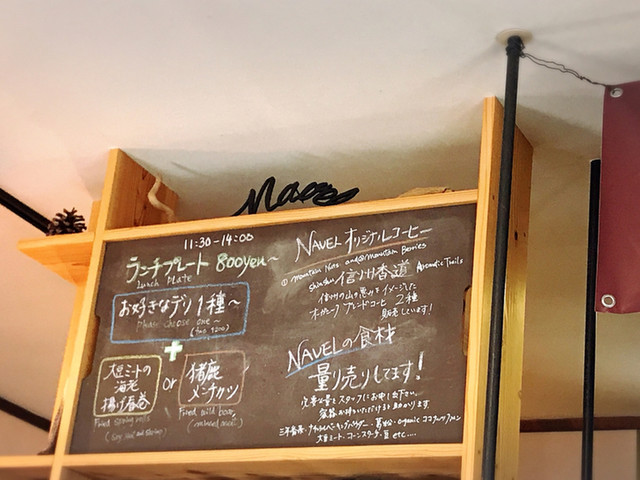 Navel
11:30-14:00
ランチプレート 800yen~
Lunch Plate
お好きなデリ1種~
Please choose one~
+
大豆ミートの
海老
揚げ春巻
or
猪鹿
メンチカツ
Fried spring rolls
(Soy meat and shrimp)
Fried wild boar
NAVEL オリジナルコーヒー
① mountain Nuts and② mountain Berries
shinshu 信州香道 Aromatic Trails
信州の山の恵みをイメージした
オーガニックブレンドコーヒー 2種
販売しています!
NAVELの食材
量り売りしてます!
必要な量をスタッフにお申し出下さい。
容器お持ちいただけると助かります。
organic ココナッツ
大豆ミート・コーンスターチ・豆 etc....